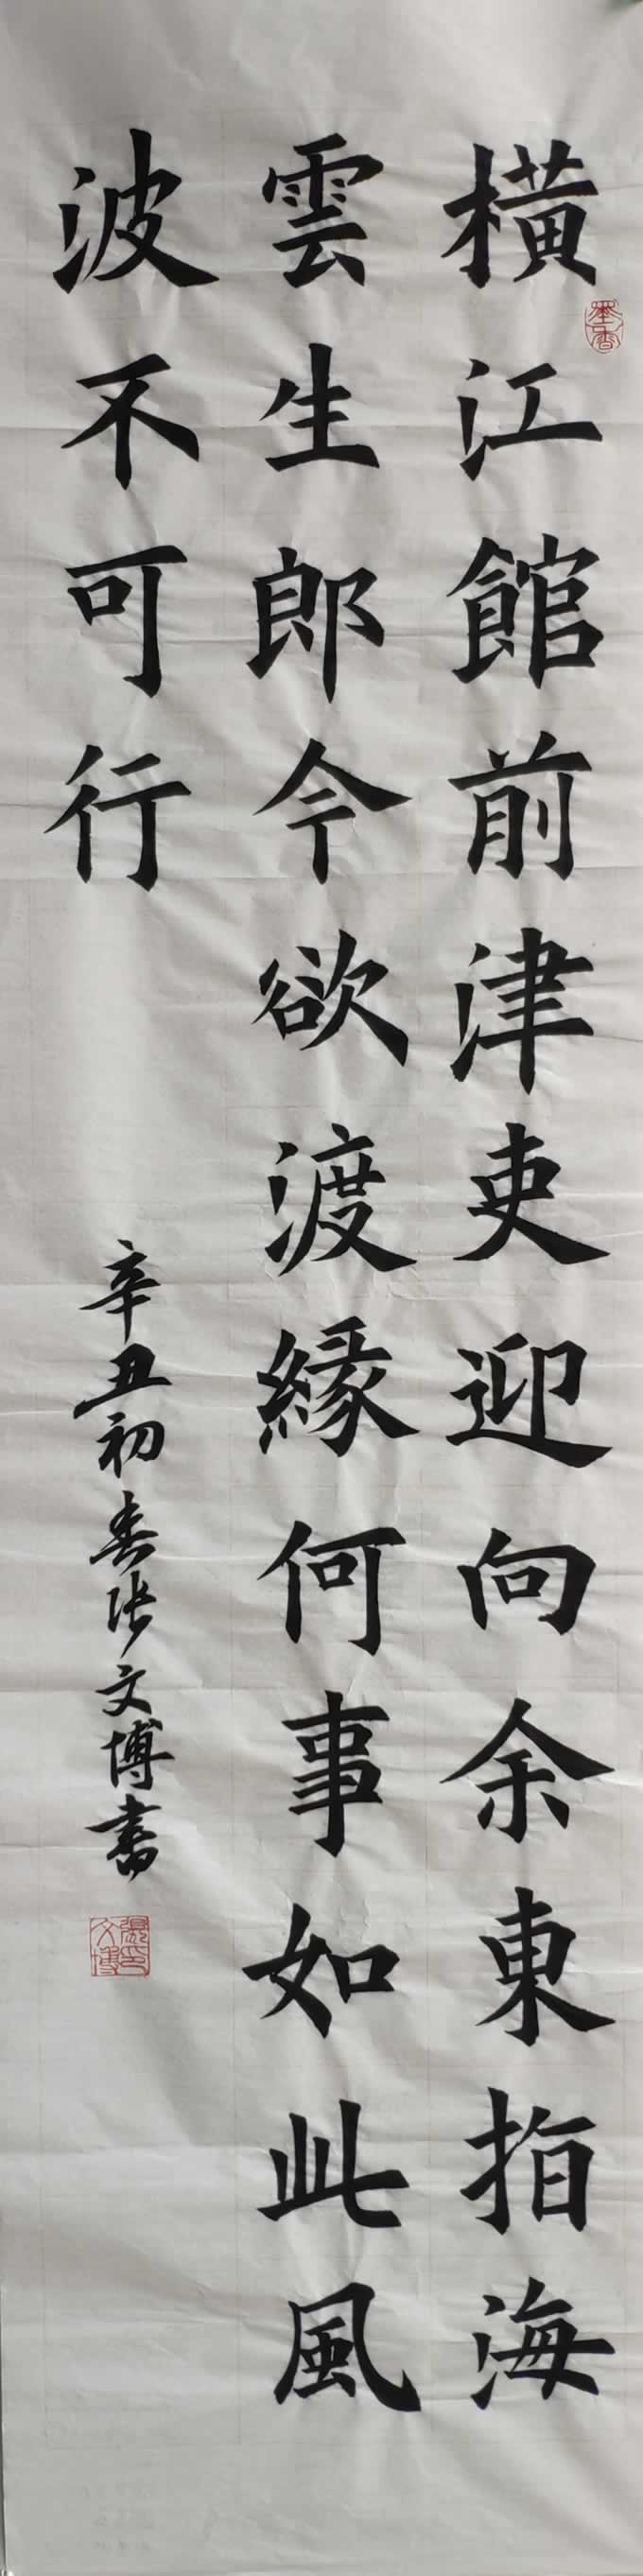 橫江館前津吏迎向余東指海
雲生郎今欲渡緣何事如此風
波不可行
辛丑初春張文博書
墨香
張文博印